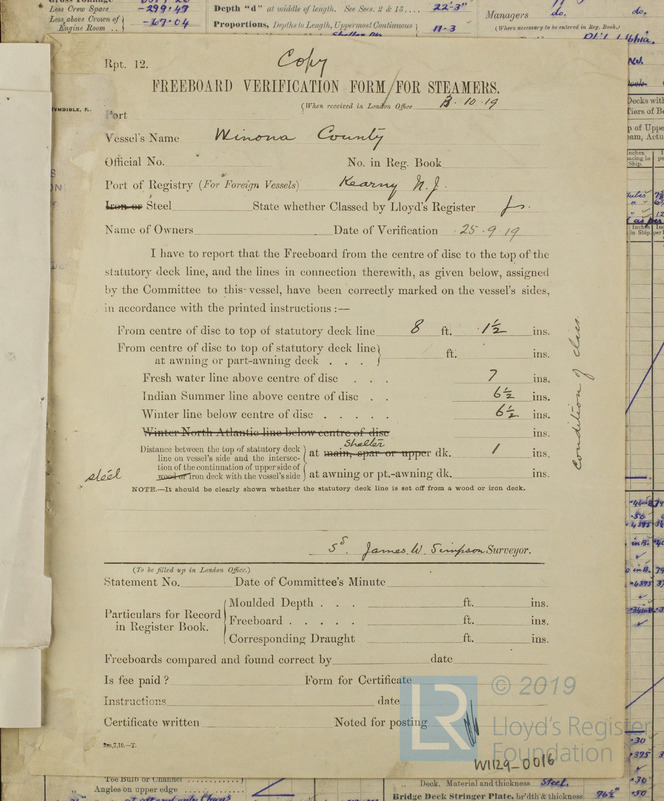 Less Crew Space -299.47
Less above Crown of Engine Room -67.04
Depth "d" at middle of length. See Secs. 2 & 13 22'-3"
Proportions, Depths to Length, Uppermost Continuous 11-3
Managers do. do.
(Where necessary to be entered in Reg. Book.)
Rpt. 12.
Copy
FREEBOARD VERIFICATION FORM FOR STEAMERS.
(When received in London Office 13.10.19
Port
Vessel's Name Winona County
Official No. No. in Reg. Book
Port of Registry (For Foreign Vessels) Kearny N.J.
Iron or Steel State whether Classed by Lloyd's Register
Name of Owners Date of Verification 25.9.19
I have to report that the Freeboard from the centre of disc to the top of the
statutory deck line, and the lines in connection therewith, as given below, assigned
by the Committee to this vessel, have been correctly marked on the vessel's sides,
in accordance with the printed instructions :—
From centre of disc to top of statutory deck line 8 ft. 1½ ins.
From centre of disc to top of statutory deck line
at awning or part-awning deck . . . ft. ins.
Fresh water line above centre of disc . . . 7 ins.
Indian Summer line above centre of disc . . 6½ ins.
Winter line below centre of disc . . . . . 6½ ins.
Winter North Atlantic line below centre of disc ins.
condition of class
Shelter
Distance between the top of statutory deck
line on vessel's side and the intersec- at main, spar or upper dk. 1 ins.
tion of the continuation of upper side of
steel wood or iron deck with the vessel's side at awning or pt.-awning dk. ins.
NOTE.—It should be clearly shown whether the statutory deck line is set off from a wood or iron deck.
Sd. James W. Simpson Surveyor.
(To be filled up in London Office.)
Statement No. Date of Committee's Minute
Particulars for Record
in Register Book.
Moulded Depth . . . ft. ins.
Freeboard . . . . . ft. ins.
Corresponding Draught ft. ins.
Freeboards compared and found correct by date
Is fee paid ? Form for Certificate
Instructions date
Certificate written Noted for posting
LR © 2019
Lloyd's Register
Foundation
W1129-0016
Angles on upper edge
Deck. Material and thickness Steel.
Bridge Deck Stringer Plate, br'dth & thickness 76½"